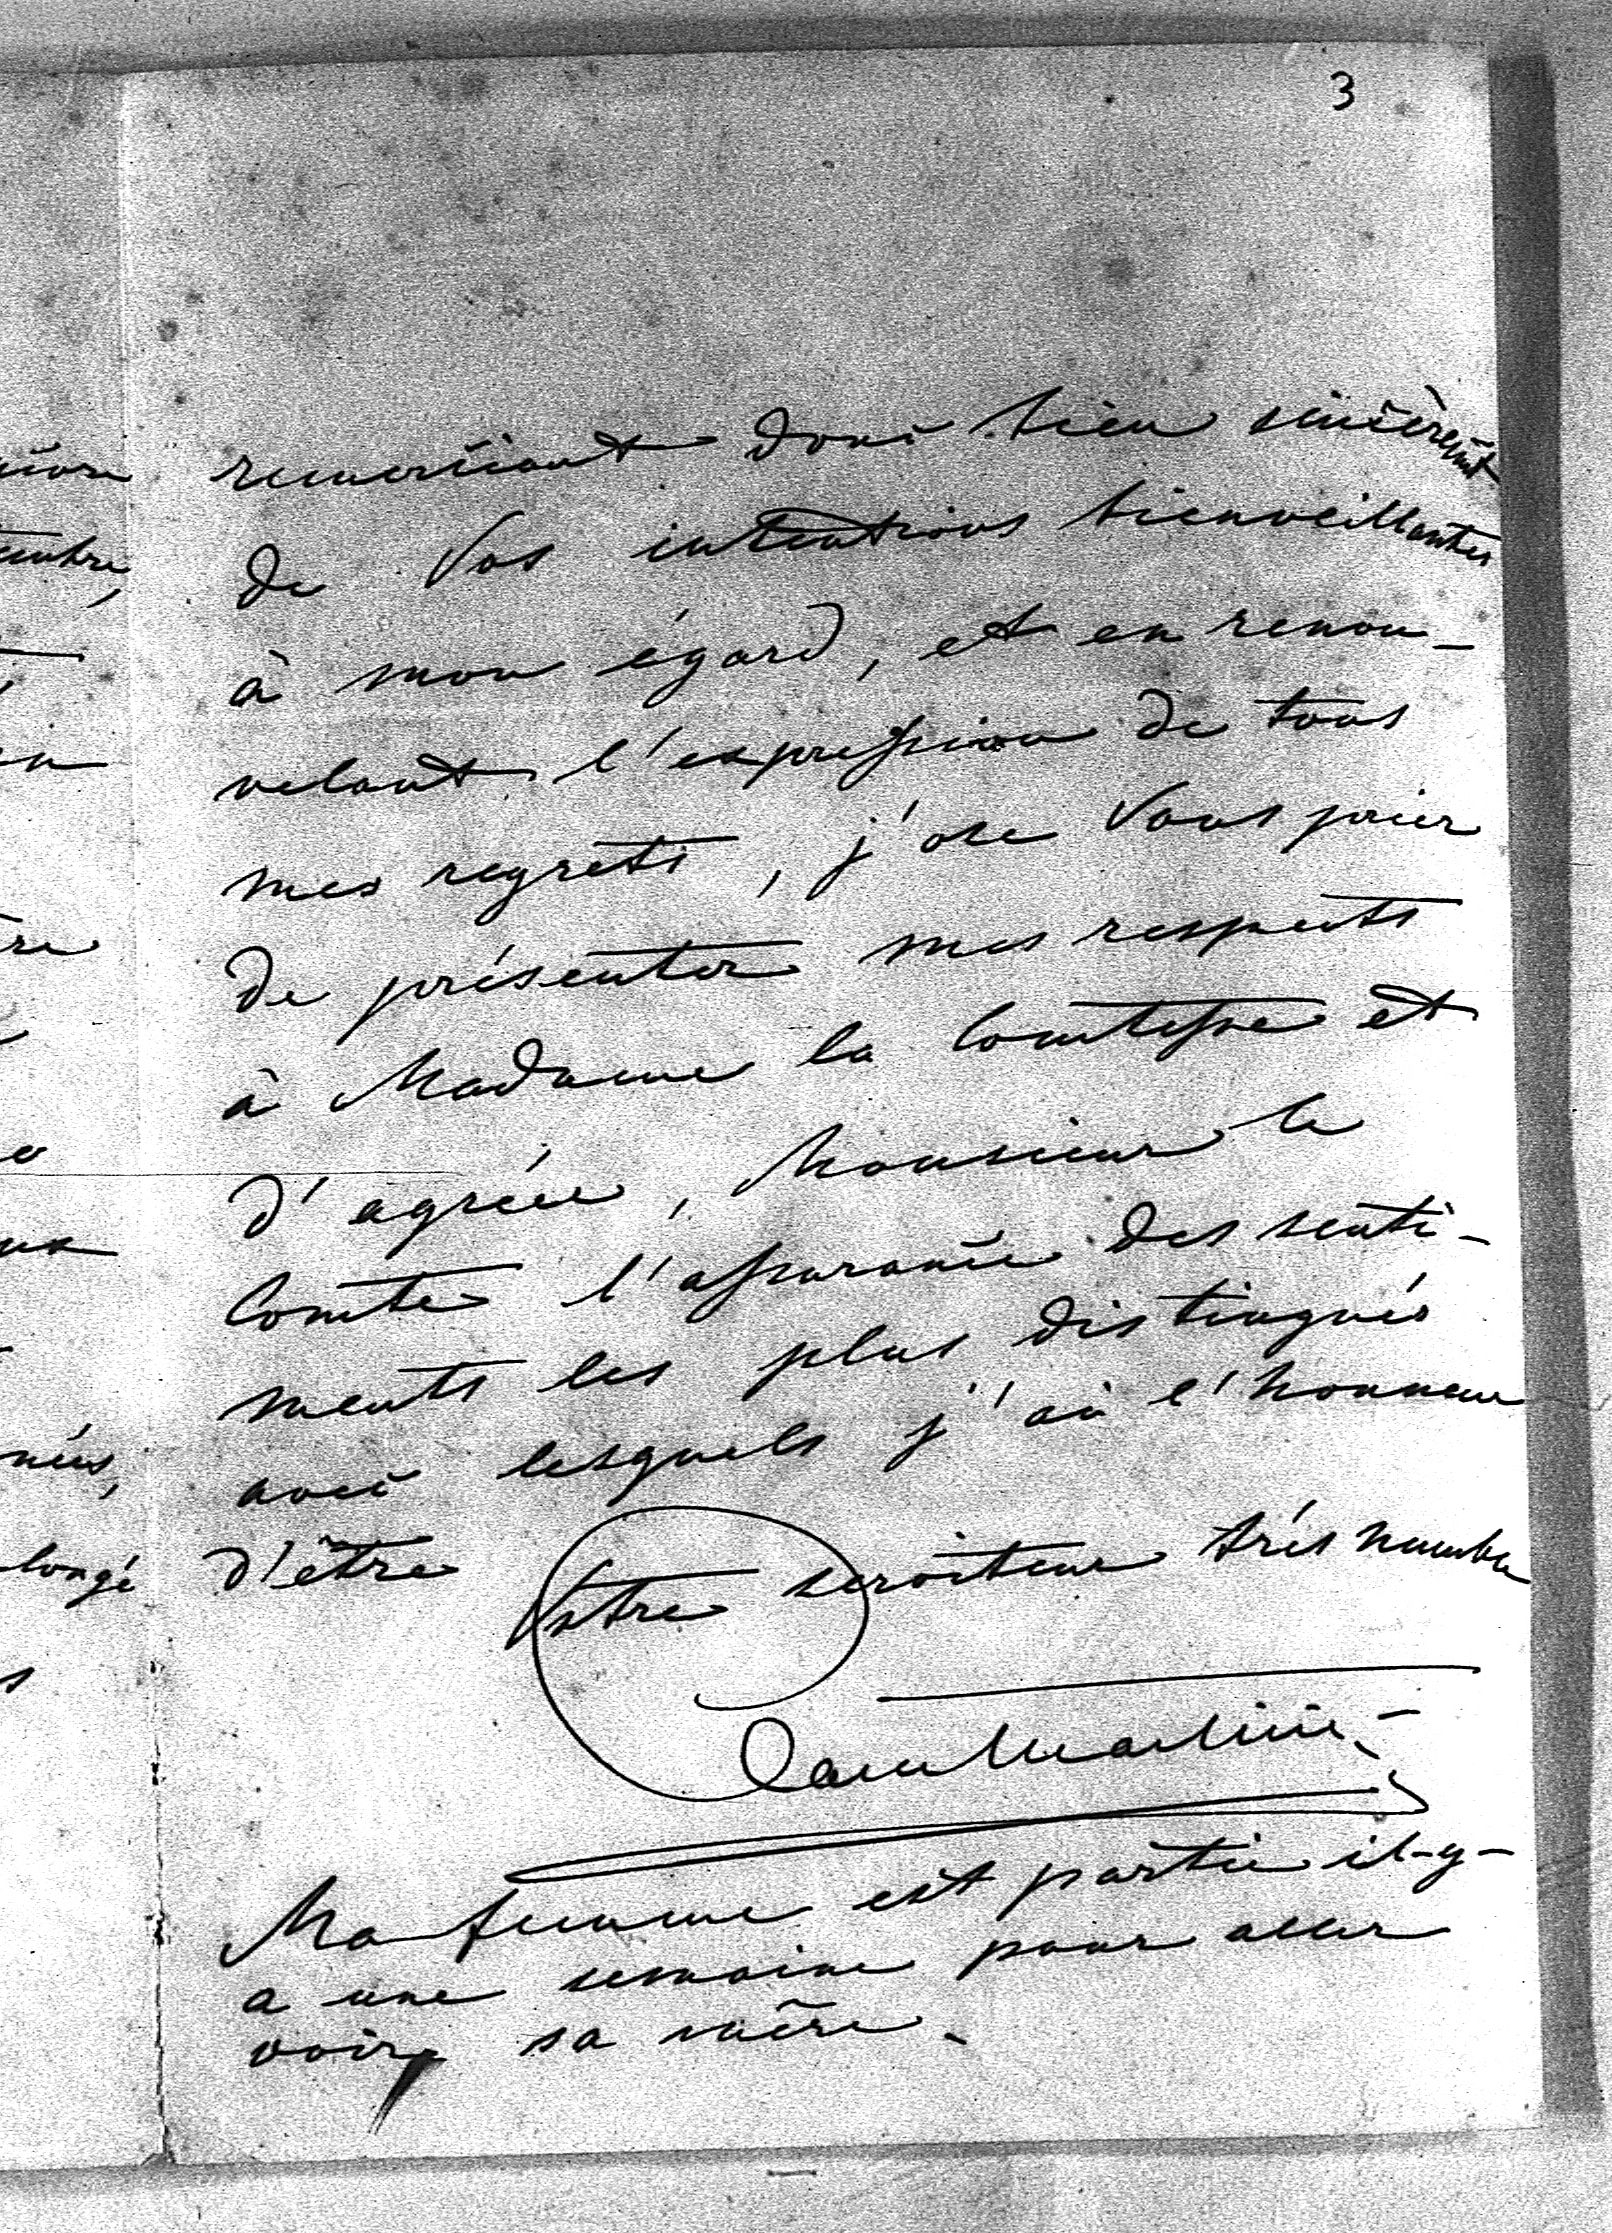 3
remerciant donc bien sincèremt
de Vos intentions bienveillantes
à mon égard, et en renou-
velant l'expression de tous
mes regrets, j'ose Vous prier
de présenter mes respects
à Madame la Comtesse et
d'agréer, Monsieur le
Comte l'assurance des senti-
ments les plus distingués
avec lesquels j'ai l'honneur
d'être
Votre serviteur très humble
Ma femme est partie il-y-
a une semaine pour aller
voir sa mère.